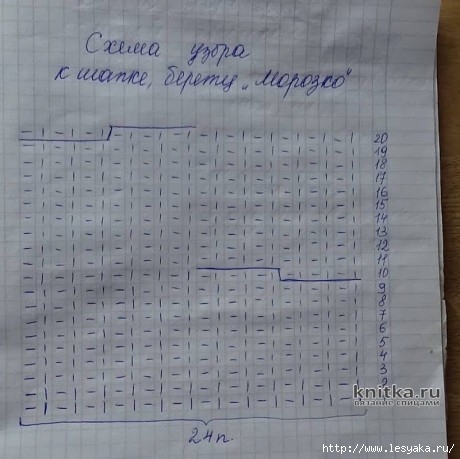 Схема узора
к шапке, берету „Морозко“
20
19
18
17
16
15
14
13
12
11
10
9
8
7
6
5
4
3
2
24п.
knitka.ru
вязание спицами
http://www.lesyaka.ru/